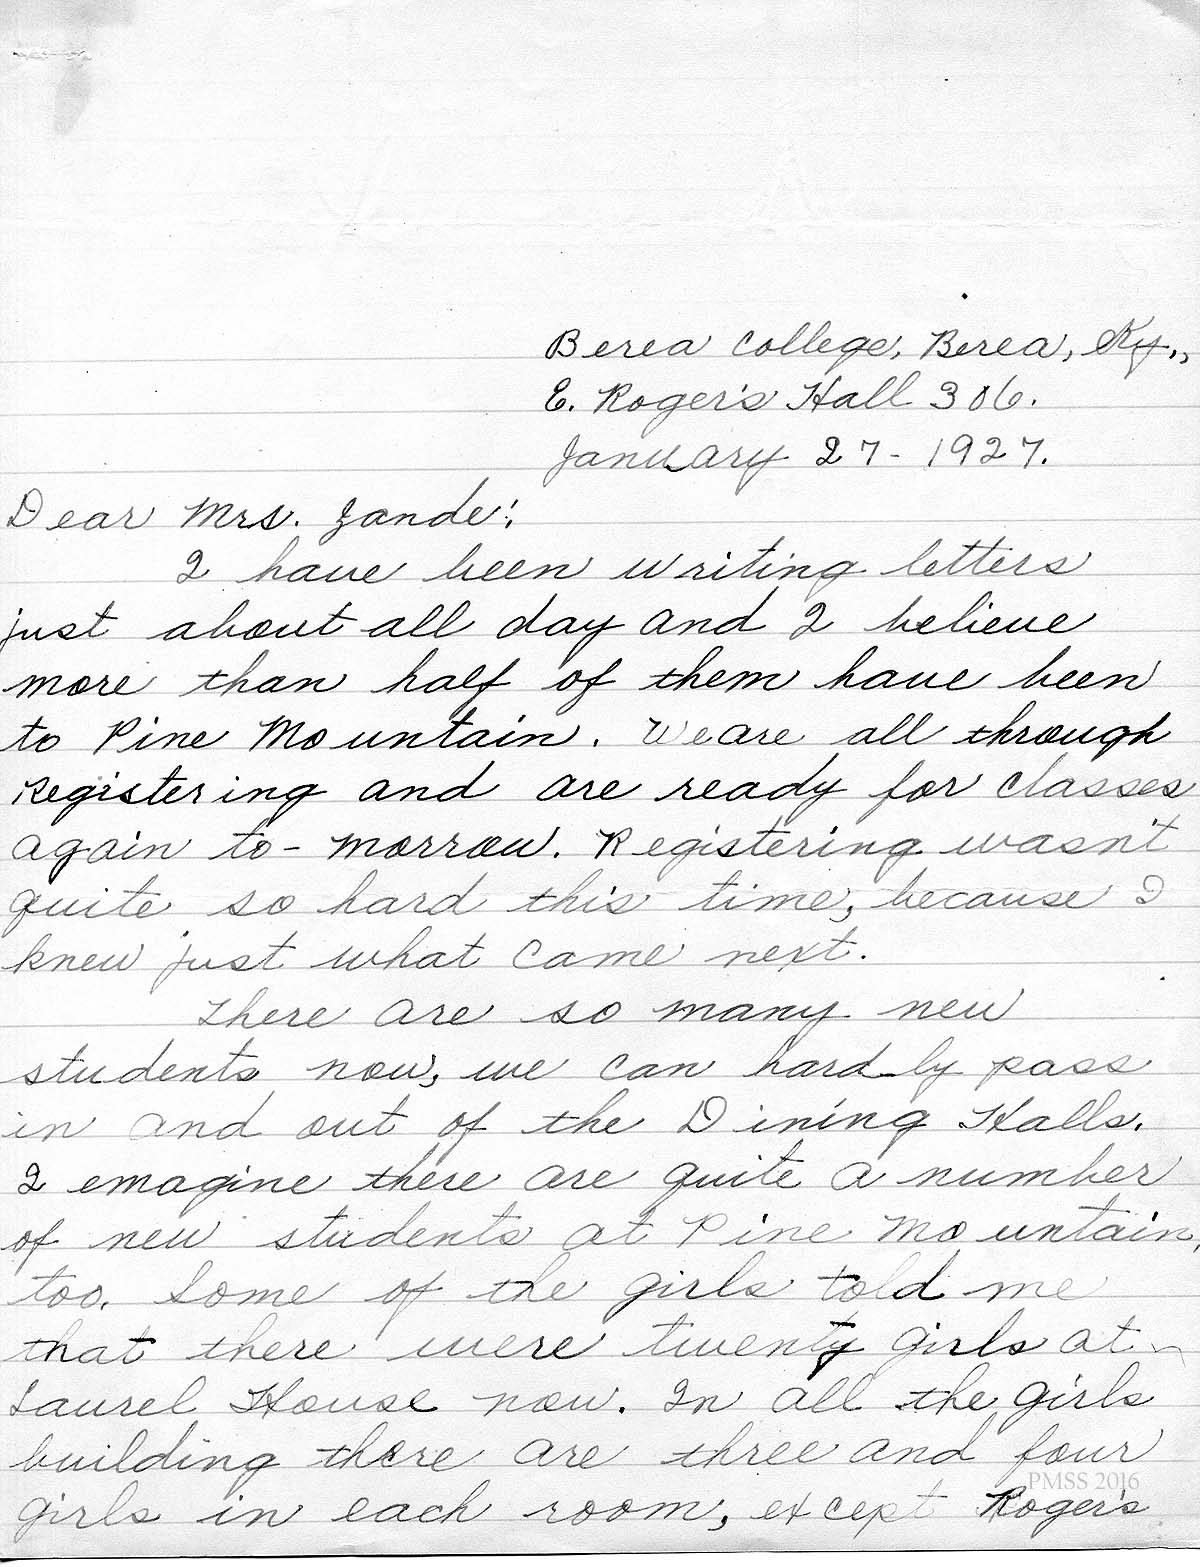 Berea College, Berea, Ky.,
E. Roger's Hall 306.
January 27-1927.
Dear Mrs. Zande:,
I have been writing letters
just about all day and I believe
more than half of them have been
to Pine Mountain. We are all through
Registering and are ready for classes
again to-morrow. Registering wasn't
quite so hard this time, because I
knew just what came next.
There are so many new
students now, we can hardly pass
in and out of the Dining Halls.
I emagine there are quite a number
of new students at Pine Mountain,
too. Some of the girls told me
that there were twenty girls at
Laurel House now. In all the girls
building there are three and four
girls in each room, except Roger's
PMSS 2016